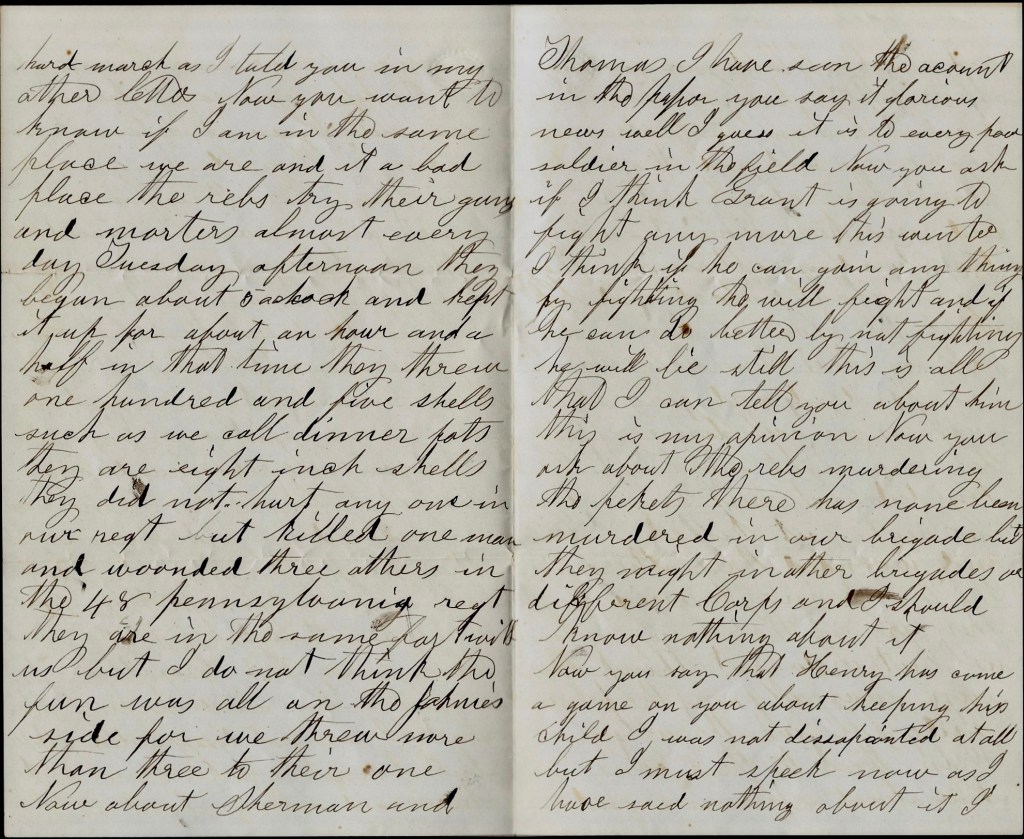 hard march as I told you in my
other letter Now you want to
know if I am in the same
place we are and it a bad
place the rebs try their guns
and morters almost every
day Tuesday afternoon they
began about 5 oclock and kept
it up for about an hour and a
half in that time they threw
one hundred and five shells
such as we call dinner pots
they are eight inch shells
they did not hurt any one in
our regt but killed one man
and woonded three others in
the 48 pennsylvania regt
they are in the same fort with
us but I do not think the
fun was all on the johnies
side for we threw more
than three to their one
Now about Sherman and
Thomas I have seen the acount
in the papor you say it glorious
news well I guess it is to every poor
soldier in the field Now you ask
if I think Grant is going to
fight any more this winter
I think if he can gain any thing
by fighting he will fight and if
he can do better by not fighting
he will lie still this is all
that I can tell you about him
this is my opinion Now you
ask about the rebs murdering
the pekets there has none been
murdered in our brigade but
they might in other brigades or
different Corps and I should
know nothing about it
Now you say that Henry has come
a game on you about keeping his
child I was not dissapointed at all
but I must speek now as I
have said nothing about it I